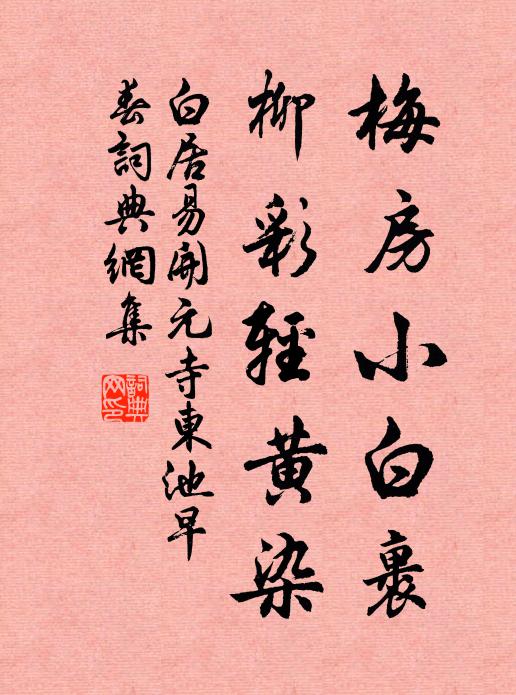 梅房小白裹
柳彩輕黃染
白居易開元寺東池早
春詞典網集
詞典
网印